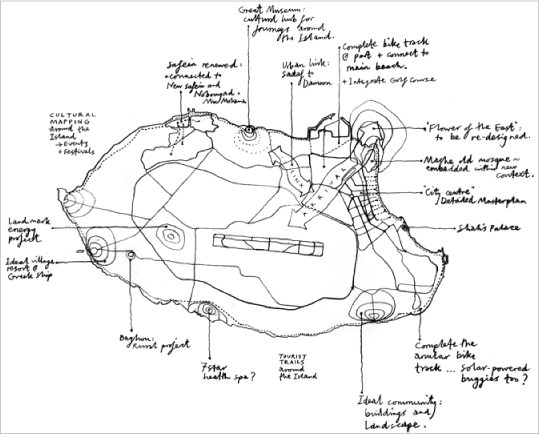 Great Museum:
cultural hub for
journeys around
the Island.
Safein renewed:
+ connected to
New Safein and
Nobonyad +
Urban link:
Sadaf to
Damoon
Complete bike track
@ port + connect to
main beach.
+ Integrate Golf Course
CULTURAL
MAPPING
around the
Island
→ Events
+ Festivals
"Flower of the East":
to be re-designed.
Mashe old mosque ~
embedded within new
context.
"City centre"
Detailed Masterplan
Shah's Palace
LINK
ARRIVAL
Landmark
energy
project
Ideal village
resort @
Greek Ship
Baghou:
Rural project
7 star
health spa?
TOURIST
TRAILS
around
the Island
Ideal community:
buildings and
Landscape.
Complete the
annular bike
track ... solar-powered
buggies too?